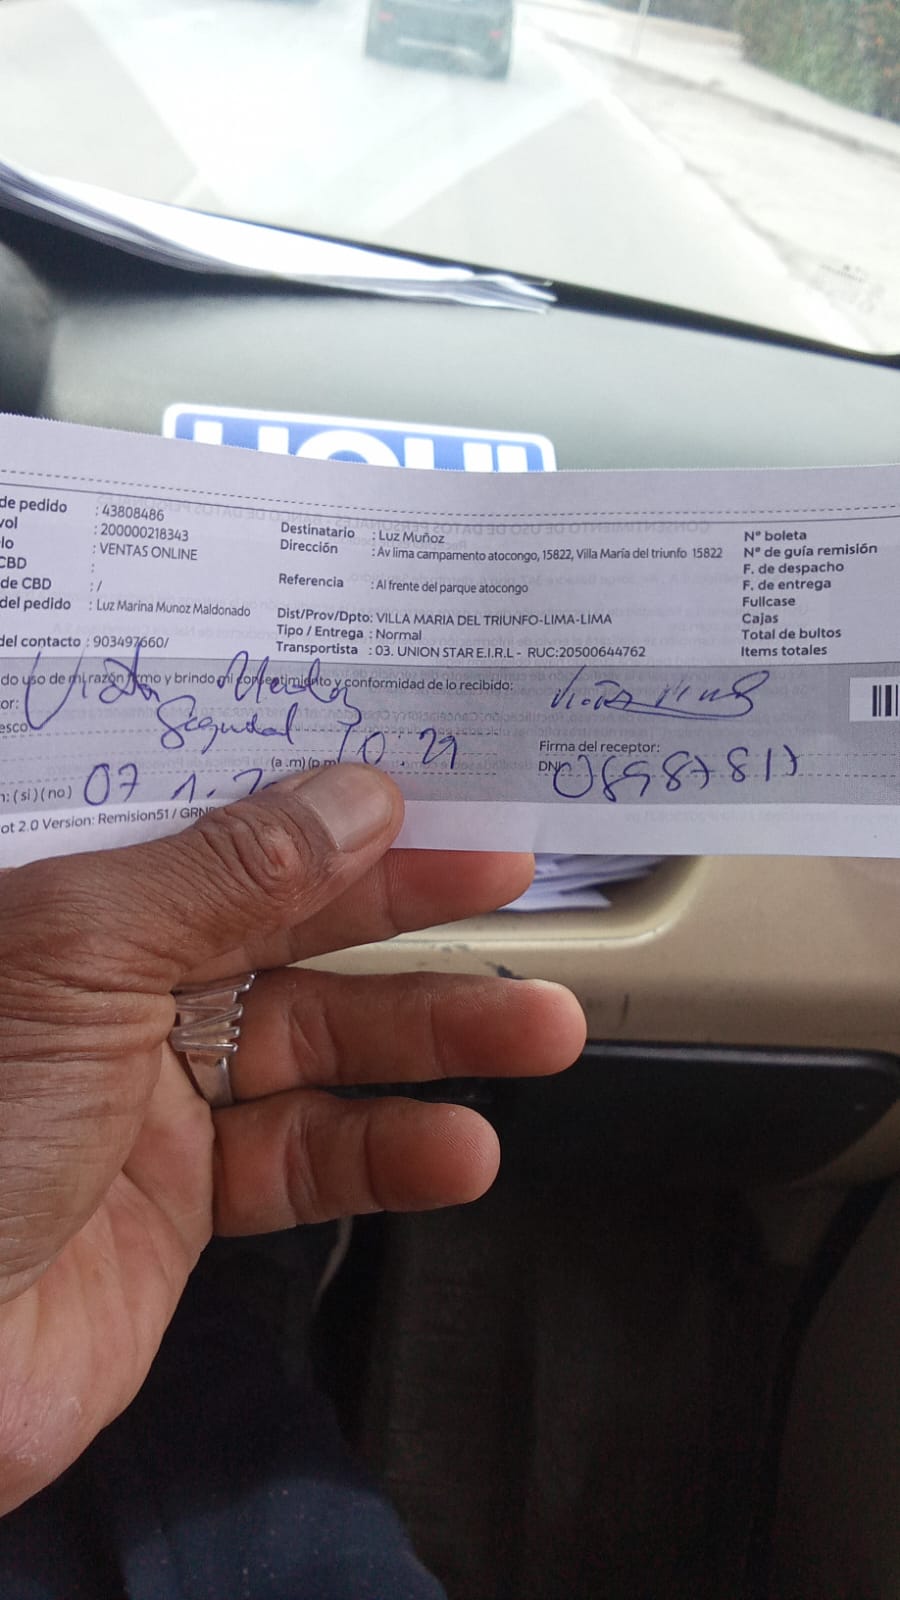 de pedido : 43808486
vol : 200000218343
lo : VENTAS ONLINE
CBD :
de CBD : /
del pedido : Luz Marina Munoz Maldonado
del contacto : 903497660/
Destinatario : Luz Muñoz
Dirección : Av lima campamento atocongo, 15822, Villa María del triunfo 15822
Referencia : Al frente del parque atocongo
Dist/Prov/Dpto: VILLA MARIA DEL TRIUNFO-LIMA-LIMA
Tipo / Entrega : Normal
Transportista : 03. UNION STAR E.I.R.L - RUC:20500644762
N° boleta
N° de guía remisión
F. de despacho
F. de entrega
Fullcase
Cajas
Total de bultos
Items totales
do uso de mi razón firmo y brindo mi consentimiento y conformidad de lo recibido:
or: Victor
esco
10:29
(a .m) (p.m
Firma del receptor:
DNI
n: ( si ) ( no ) 07
ot 2.0 Version: Remision51 / GRN